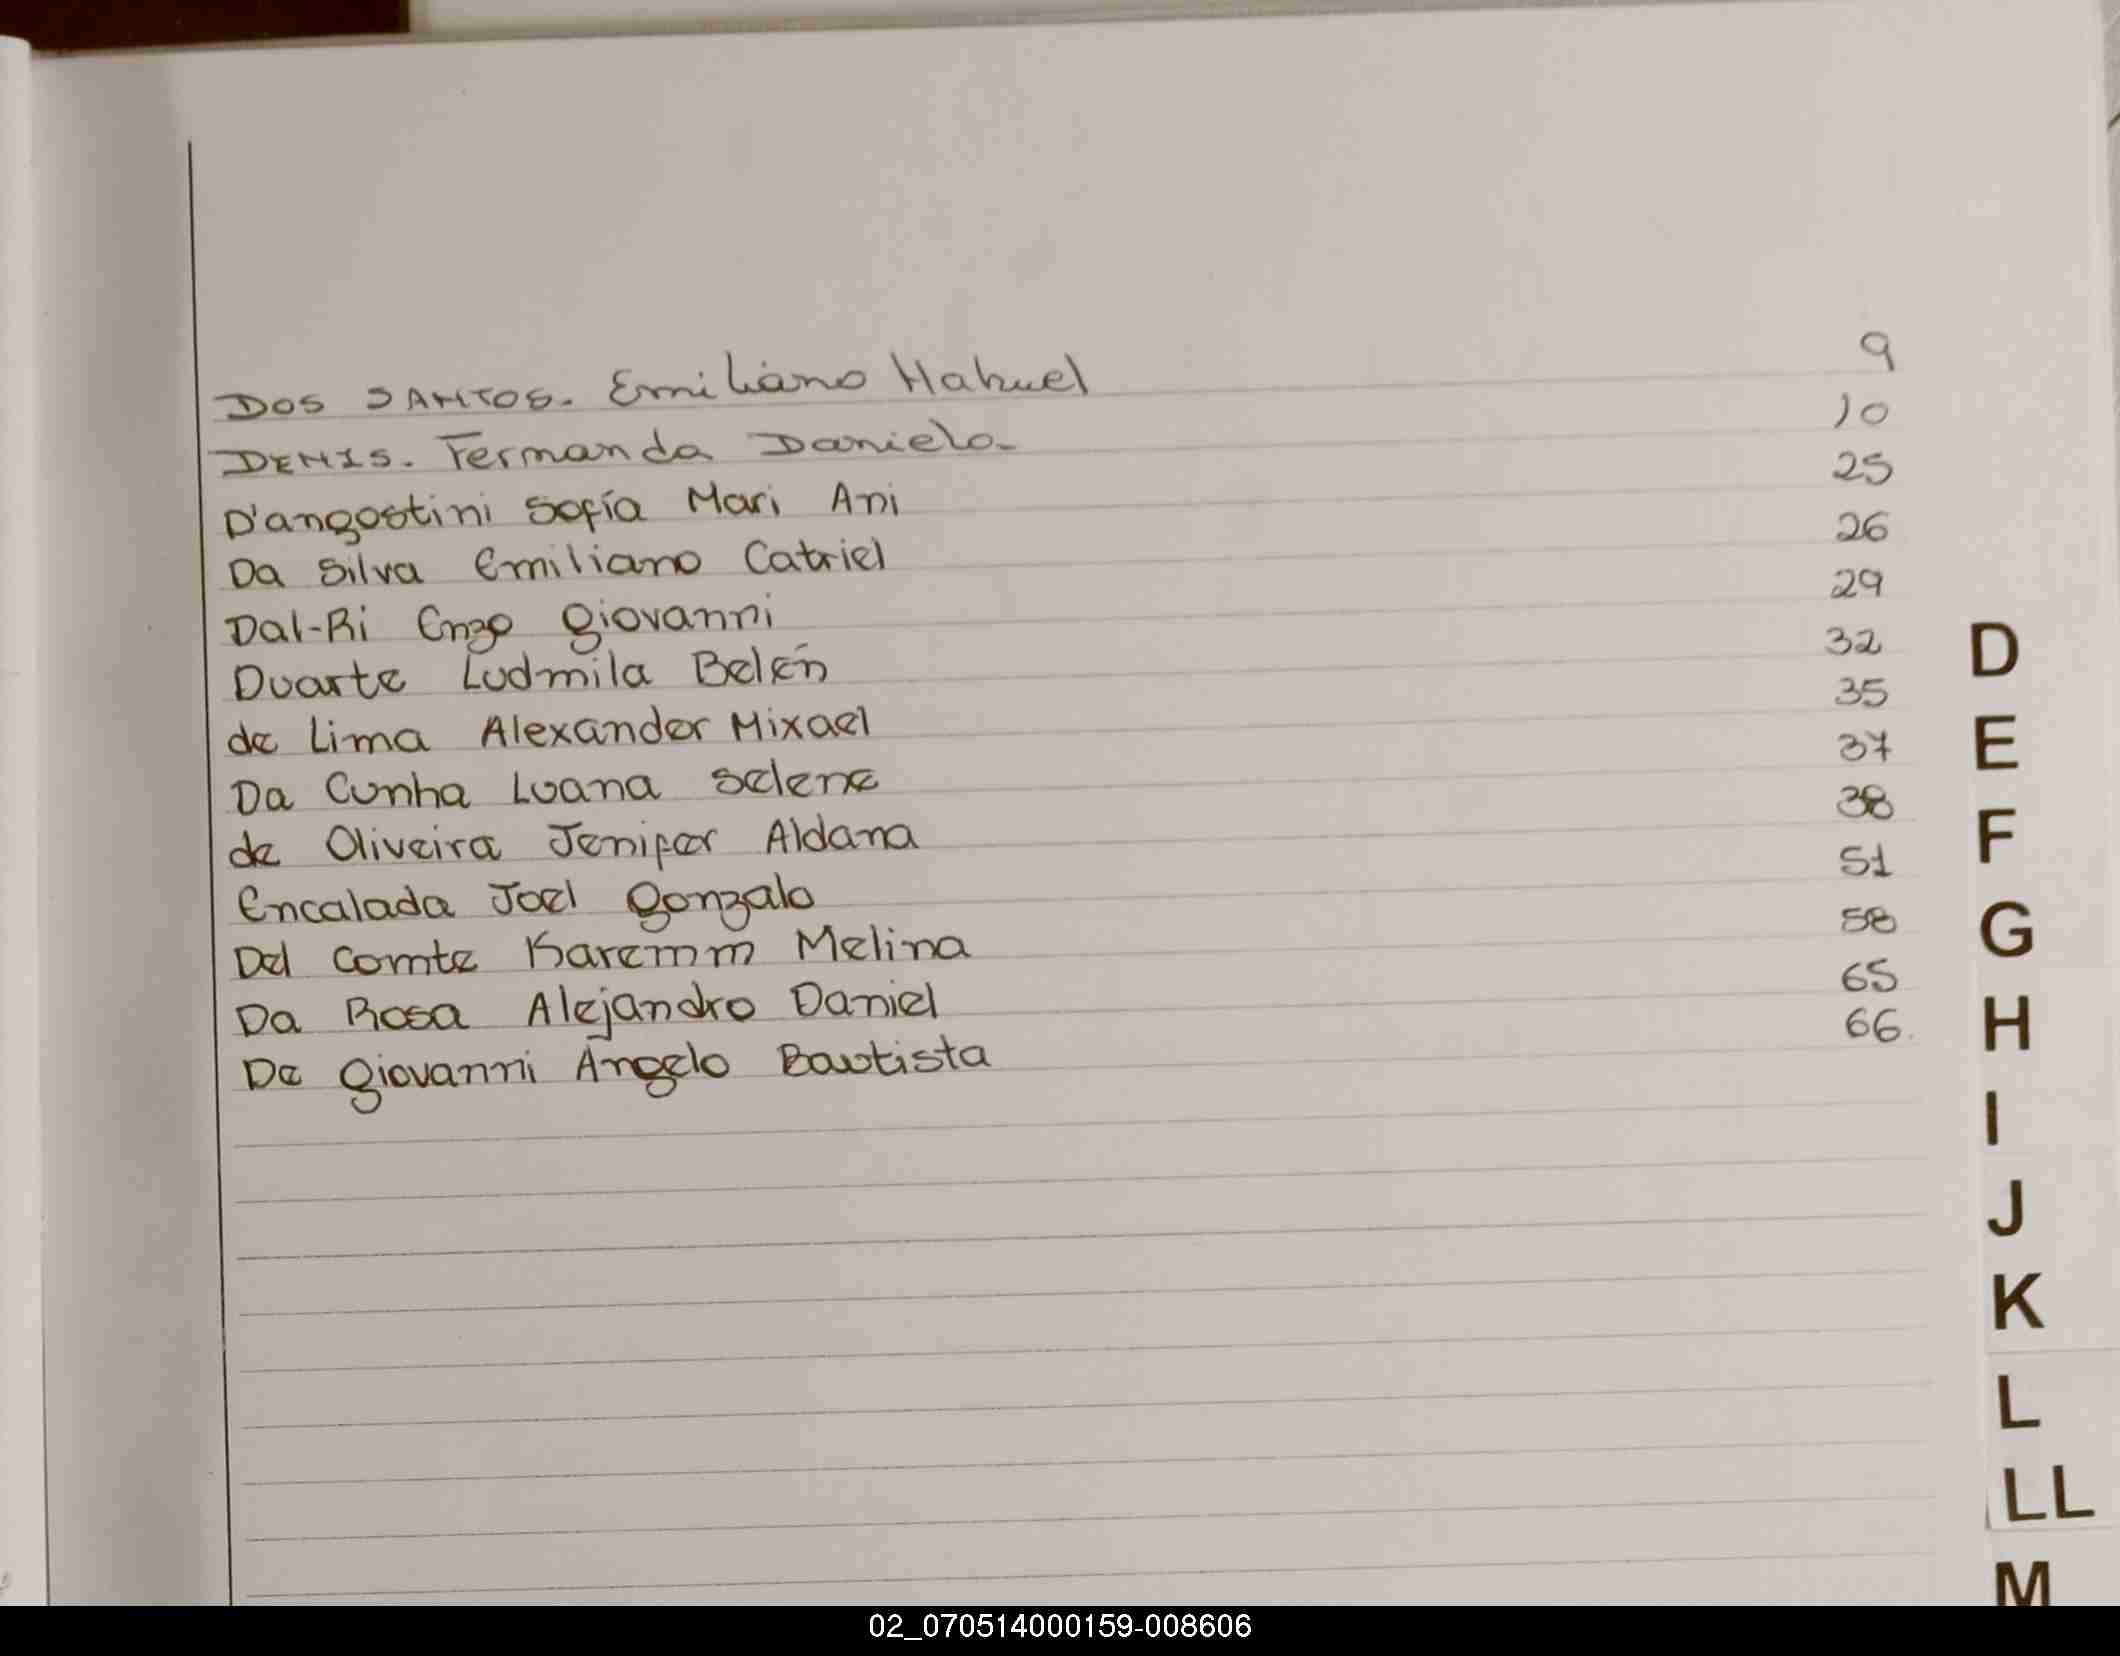 DOS SANTOS. Emiliano Nahuel 9
DENIS. Fernanda Daniela- 10
D'angostini Sofía Mari Ani 25
Da Silva Emiliano Catriel 26
Dal-Ri Enzo Giovanni 29
Duarte Ludmila Belén 32
de Lima Alexander Mixael 35
Da Cunha Luana Selene 37
de Oliveira Jenifer Aldana 38
Encalada Joel Gonzalo 51
Del Comte Karemm Melina 58
Da Rosa Alejandro Daniel 65
De Giovanni Ángelo Bautista 66.
D
E
F
G
H
I
J
K
L
LL
M
02_070514000159-008606